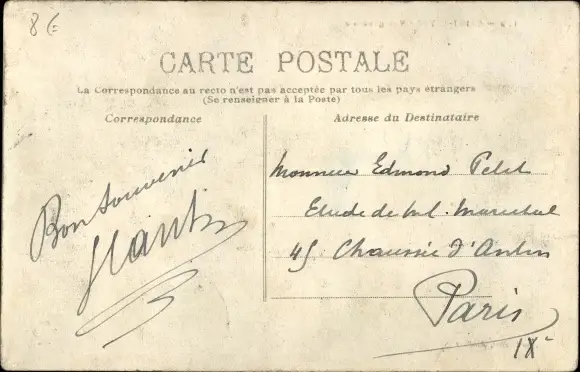 8 €
CARTE POSTALE
La Correspondance au recto n'est pas acceptée par tous les pays étrangers
(Se renseigner à la Poste)
Correspondance
Adresse du Destinataire
Bon souvenir
Monsieur Edmond Petit
Etude de Me. Marechal
45 Chaussée d'Antin
Paris
IXe